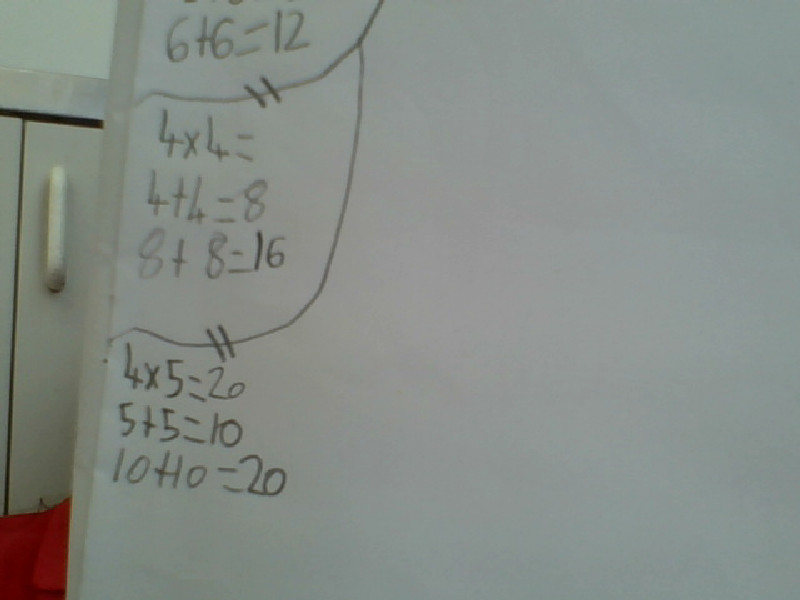 6+6=12
4x4=
4+4=8
8+8=16
4x5=20
5+5=10
10+10=20